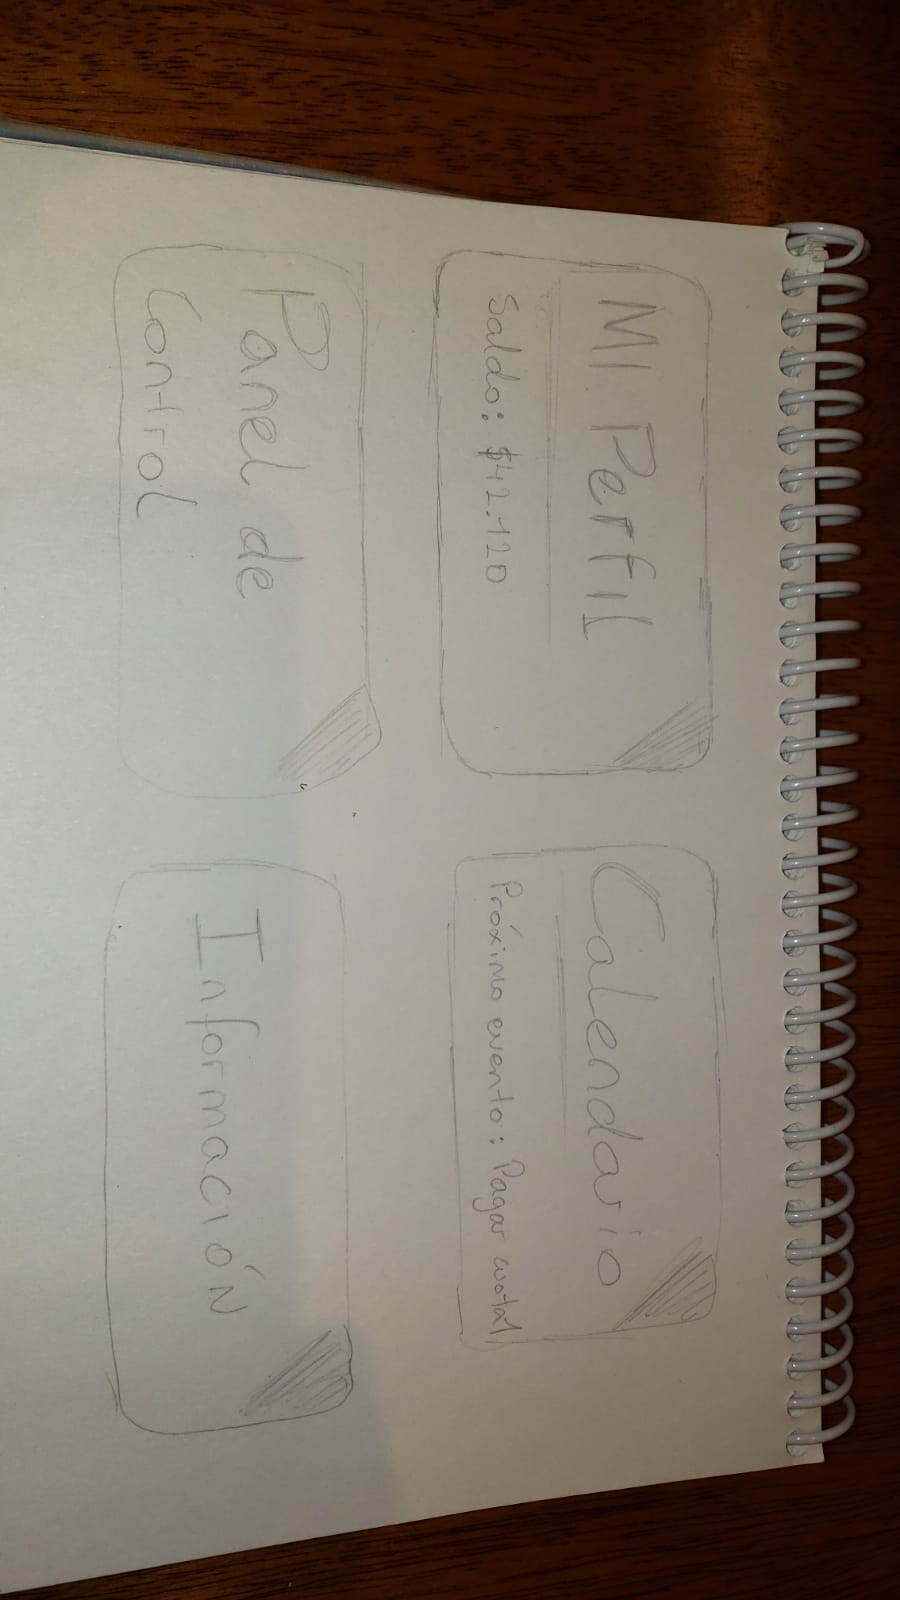 MI Perfil
Saldo: $42.120
Calendario
Próximo evento: Pagar
Panel de
Control
Información